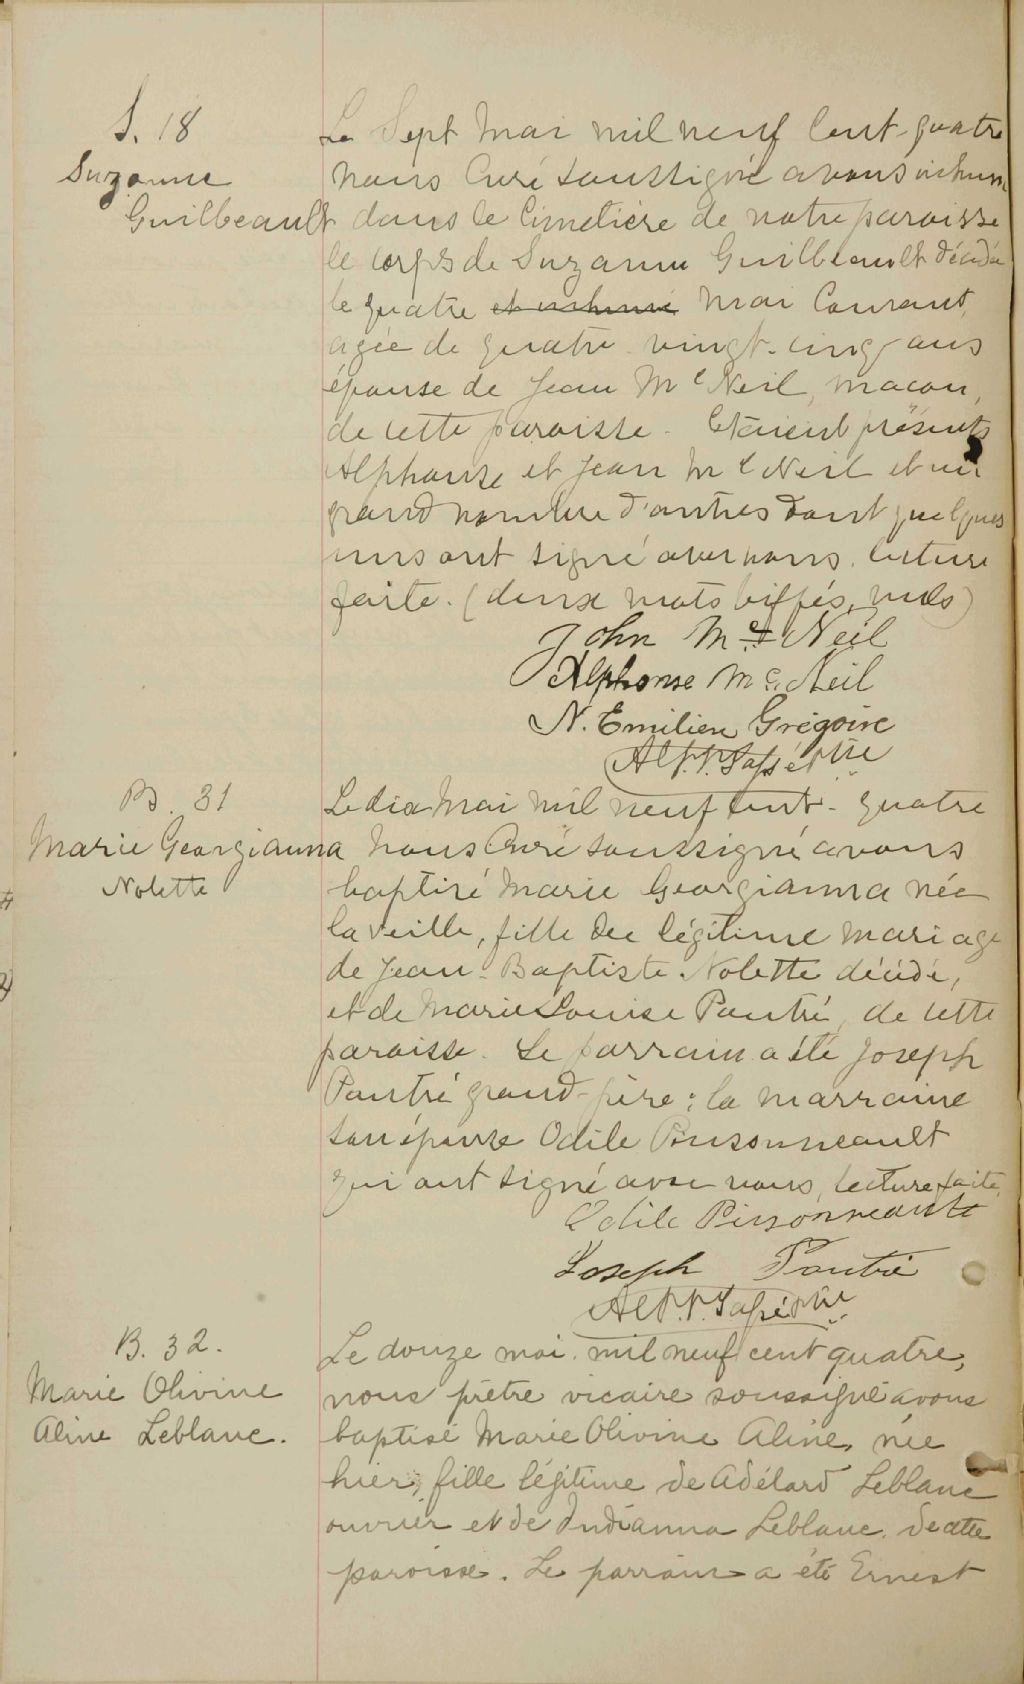 S. 18
Suzanne
Guilbeault
Le Sept Mai mil neuf Cent-quatre
nous Curé soussigné avons inhumé
dans le Cimetière de notre paroisse
le corps de Suzanne Guilbeault décédée
le quatre et inhumé mai Courant,
agée de quatre-vingt-cinq ans
épouse de Jean McNeil, macon,
de cette paroisse. Etaient présents
Alphonse et Jean McNeil et un
grand nombre d'autres dont quelques
uns ont signé avec nous. lecture
faite. (deux mots biffés, nuls)
John McNeil
Alphonse McNeil
N. Emilien Grégoire
B. 31
Marie Georgianna
Nolette
Le dix Mai mil neuf cent-quatre
Nous Curé soussigné avons
baptisé Marie Georgianna née
la veille, fille du légitime mariage
de Jean-Baptiste Nolette décédé,
et de Marie Louise Pautré, de cette
paroisse. Le parrain a été Joseph
Pautré grand-père; la marraine
son épouse Odile Pinsonneault
qui ont signé avec nous, lecture faite.
Odile Pinsonneault
Joseph Pautré
B. 32.
Marie Olivine
Aline Leblanc.
Le douze mai mil neuf cent quatre,
nous prêtre vicaire soussigné avons
baptisé Marie Olivine Aline, née
hier, fille légitime de Adélard Leblanc
ouvrier et de Indianna Leblanc de cette
paroisse. Le parrain a été Ernest